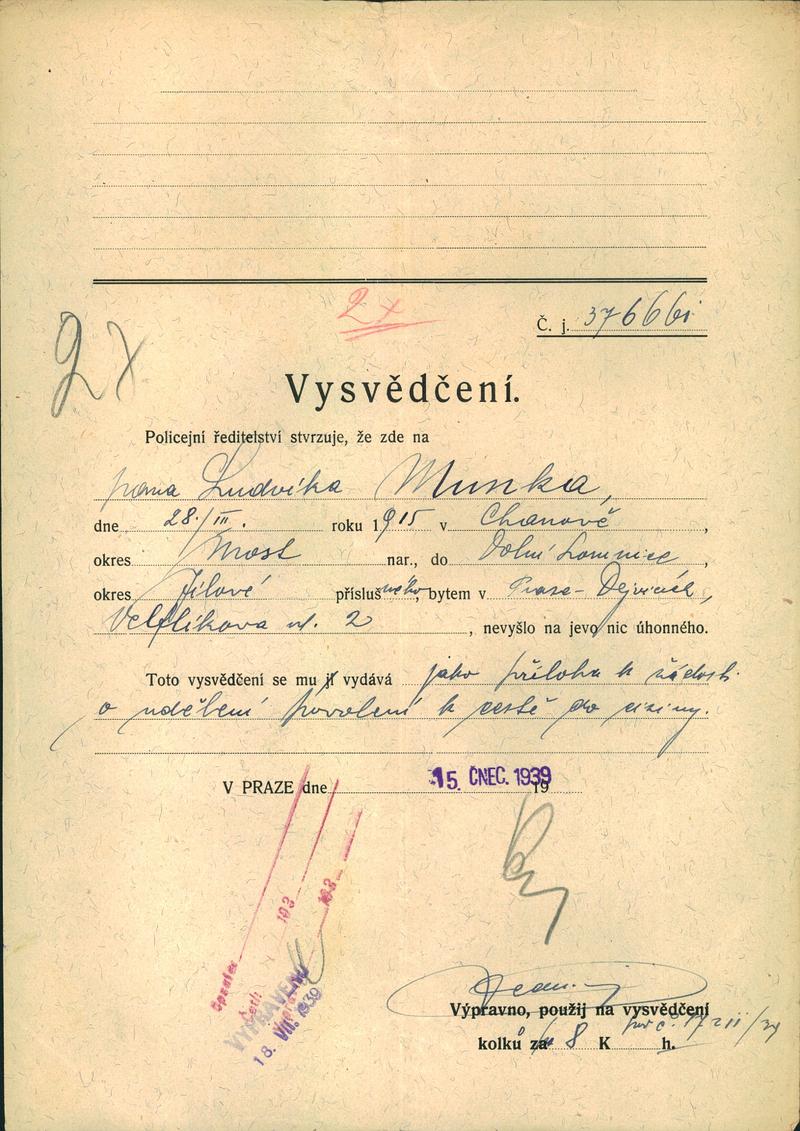 2x
Č. j. 37666i
2x
Vysvědčení.
Policejní ředitelství stvrzuje, že zde na
pana Ludvíka Munka,
dne 28./III. roku 1915 v Chanově,
okres Most nar., do Dolní Lomnice,
okres Jílové příslušného, bytem v Praze-Dejvicích,
ul. 2, nevyšlo na jevo nic úhonného.
Toto vysvědčení se mu jí vydává jako příloha k žádosti
o udělení povolení k cestě do ciziny.
V PRAZE dne 15. ČNEC. 1939 19
193
193
Opsal:
Četl:
VYPRAVENO
18. VII. 1939
Výpravno, použij na vysvědčení
kolků za 8 K h.